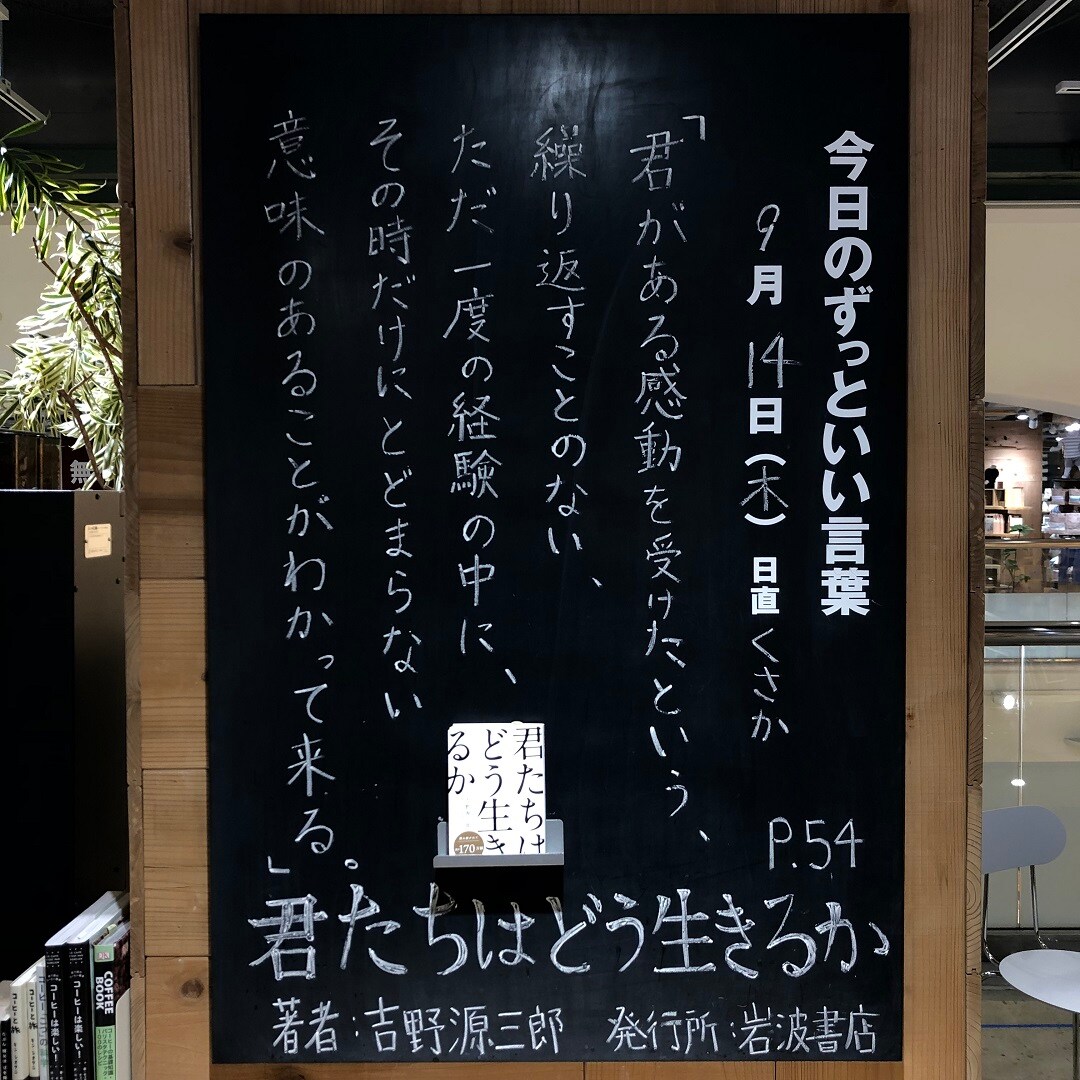 今日のずっといい言葉
9月14日(木) 日直 くさか
「君がある感動を受けたという、
繰り返すことのない、
ただ一度の経験の中に、
その時だけにとどまらない
意味のあることがわかって来る。」
P.54
君たちは
どう生き
るか
170
君たちはどう生きるか
著者:吉野源三郎 発行所:岩波書店
無
COFFEE BOOK
コーヒーは楽しい!
コーヒーは楽しい!